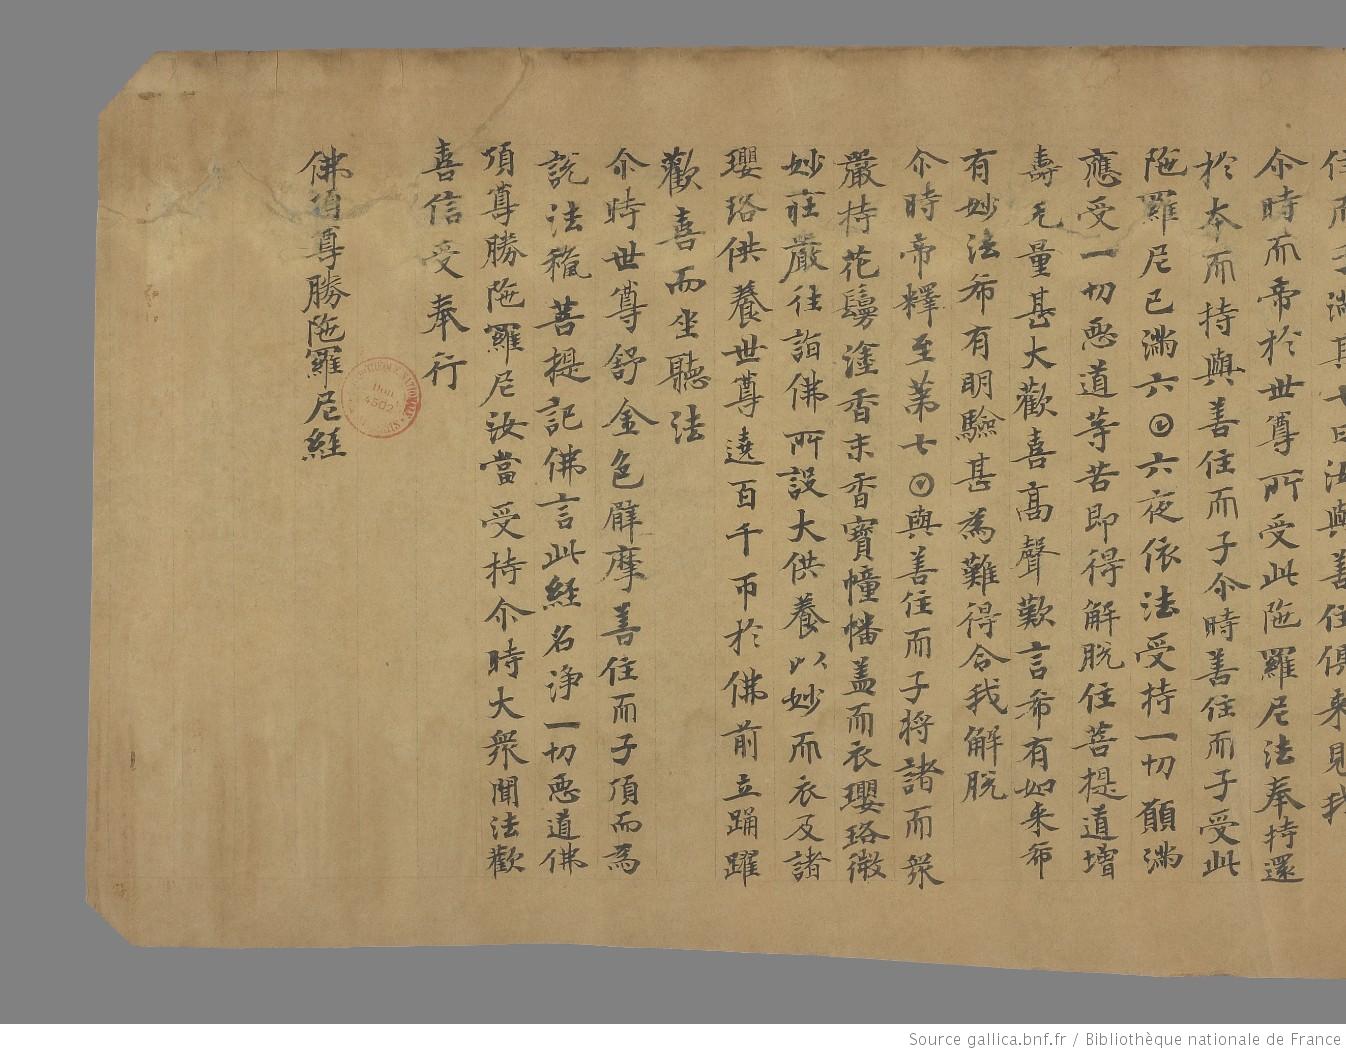 住𠀑子滿其七日汝與善住俱來見我
尒時𠀑帝於世尊所受此陁羅尼法奉持還
於本𠀑持與善住𠀑子尒時善住𠀑子受此
陁羅尼已滿六𡆠六夜依法受持一切願滿
應受一切惡道等苦即得解脫住菩提道增
壽无量甚大歡喜高聲歎言希有如來希
有妙法希有明驗甚為難得令我解脫
尒時帝釋至苐七𡆠與善住𠀑子將諸𠀑眾
嚴持花鬘塗香末香寶幢幡盖𠀑衣瓔珞微
妙莊嚴往詣佛所設大供養以妙𠀑衣及諸
瓔珞供養世尊遶百千帀於佛前立踊躍
歡喜而坐聽法
尒時世尊舒金色臂摩善住𠀑子頂而為
說法授菩提記佛言此經名淨一切惡道佛
頂尊勝陁羅尼汝當受持尒時大眾聞法歡
喜信受奉行
佛頂尊勝陁羅尼經
Don
4502
Source gallica.bnf.fr / Bibliothèque nationale de France